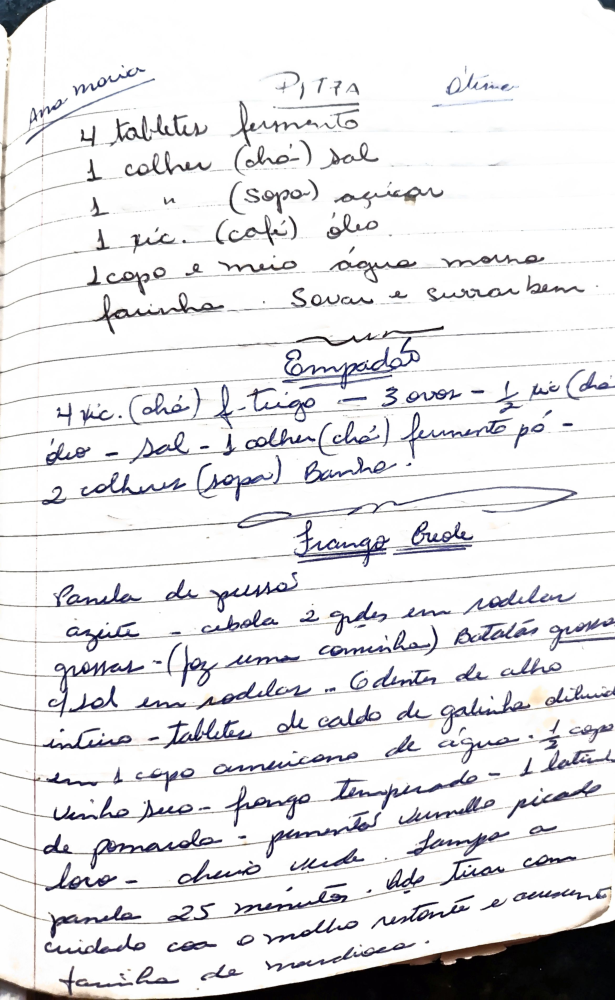 Ana Maria
PITZA
Ótima
4 tabletes fermento
1 colher (chá) sal
1 " (sopa) açúcar
1 xic. (café) óleo
1 copo e meio água morna
farinha. Sovar e surrar bem.
Empadão
4 xic. (chá) f. trigo - 3 ovos - 1/2 xic (chá
óleo - sal - 1 colher (chá) fermento pó -
2 colheres (sopa) Banha.
Frango
Panela de pressão
azeite - cebola 2 gdes em rodelas
grossas - (faz uma caminha) Batatas grossa
c/ sal em rodelas - 6 dentes de alho
inteiro - tabletes de caldo de galinha diluid
em 1 copo americano de água. 1/2 copo
vinho seco - frango temperado - 1 latinh
de pomarola - pimentão vermelho picado
loro - cheiro verde. Tampa a
panela 25 minutos. Ao tirar com
cuidado coa o molho restante e acrescent
farinha de mandioca.